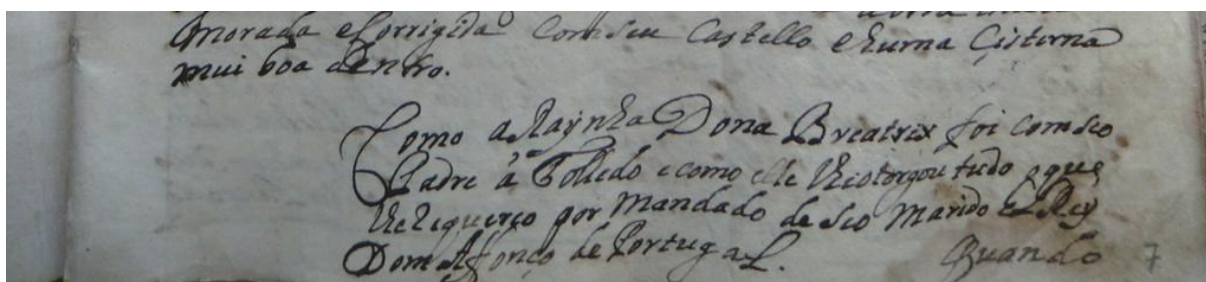 morada e Corrigida Com seu Castello e huma Cisterna
mui boa dentro.
Como a Raÿnha Dona Breatrix foi com seo
Padre â Tolledo e como elle lhe otorgou tudo o que
lhe requereo por mandado de seo Marido el Rey
Dom Affonço de Portugal. Quando 7